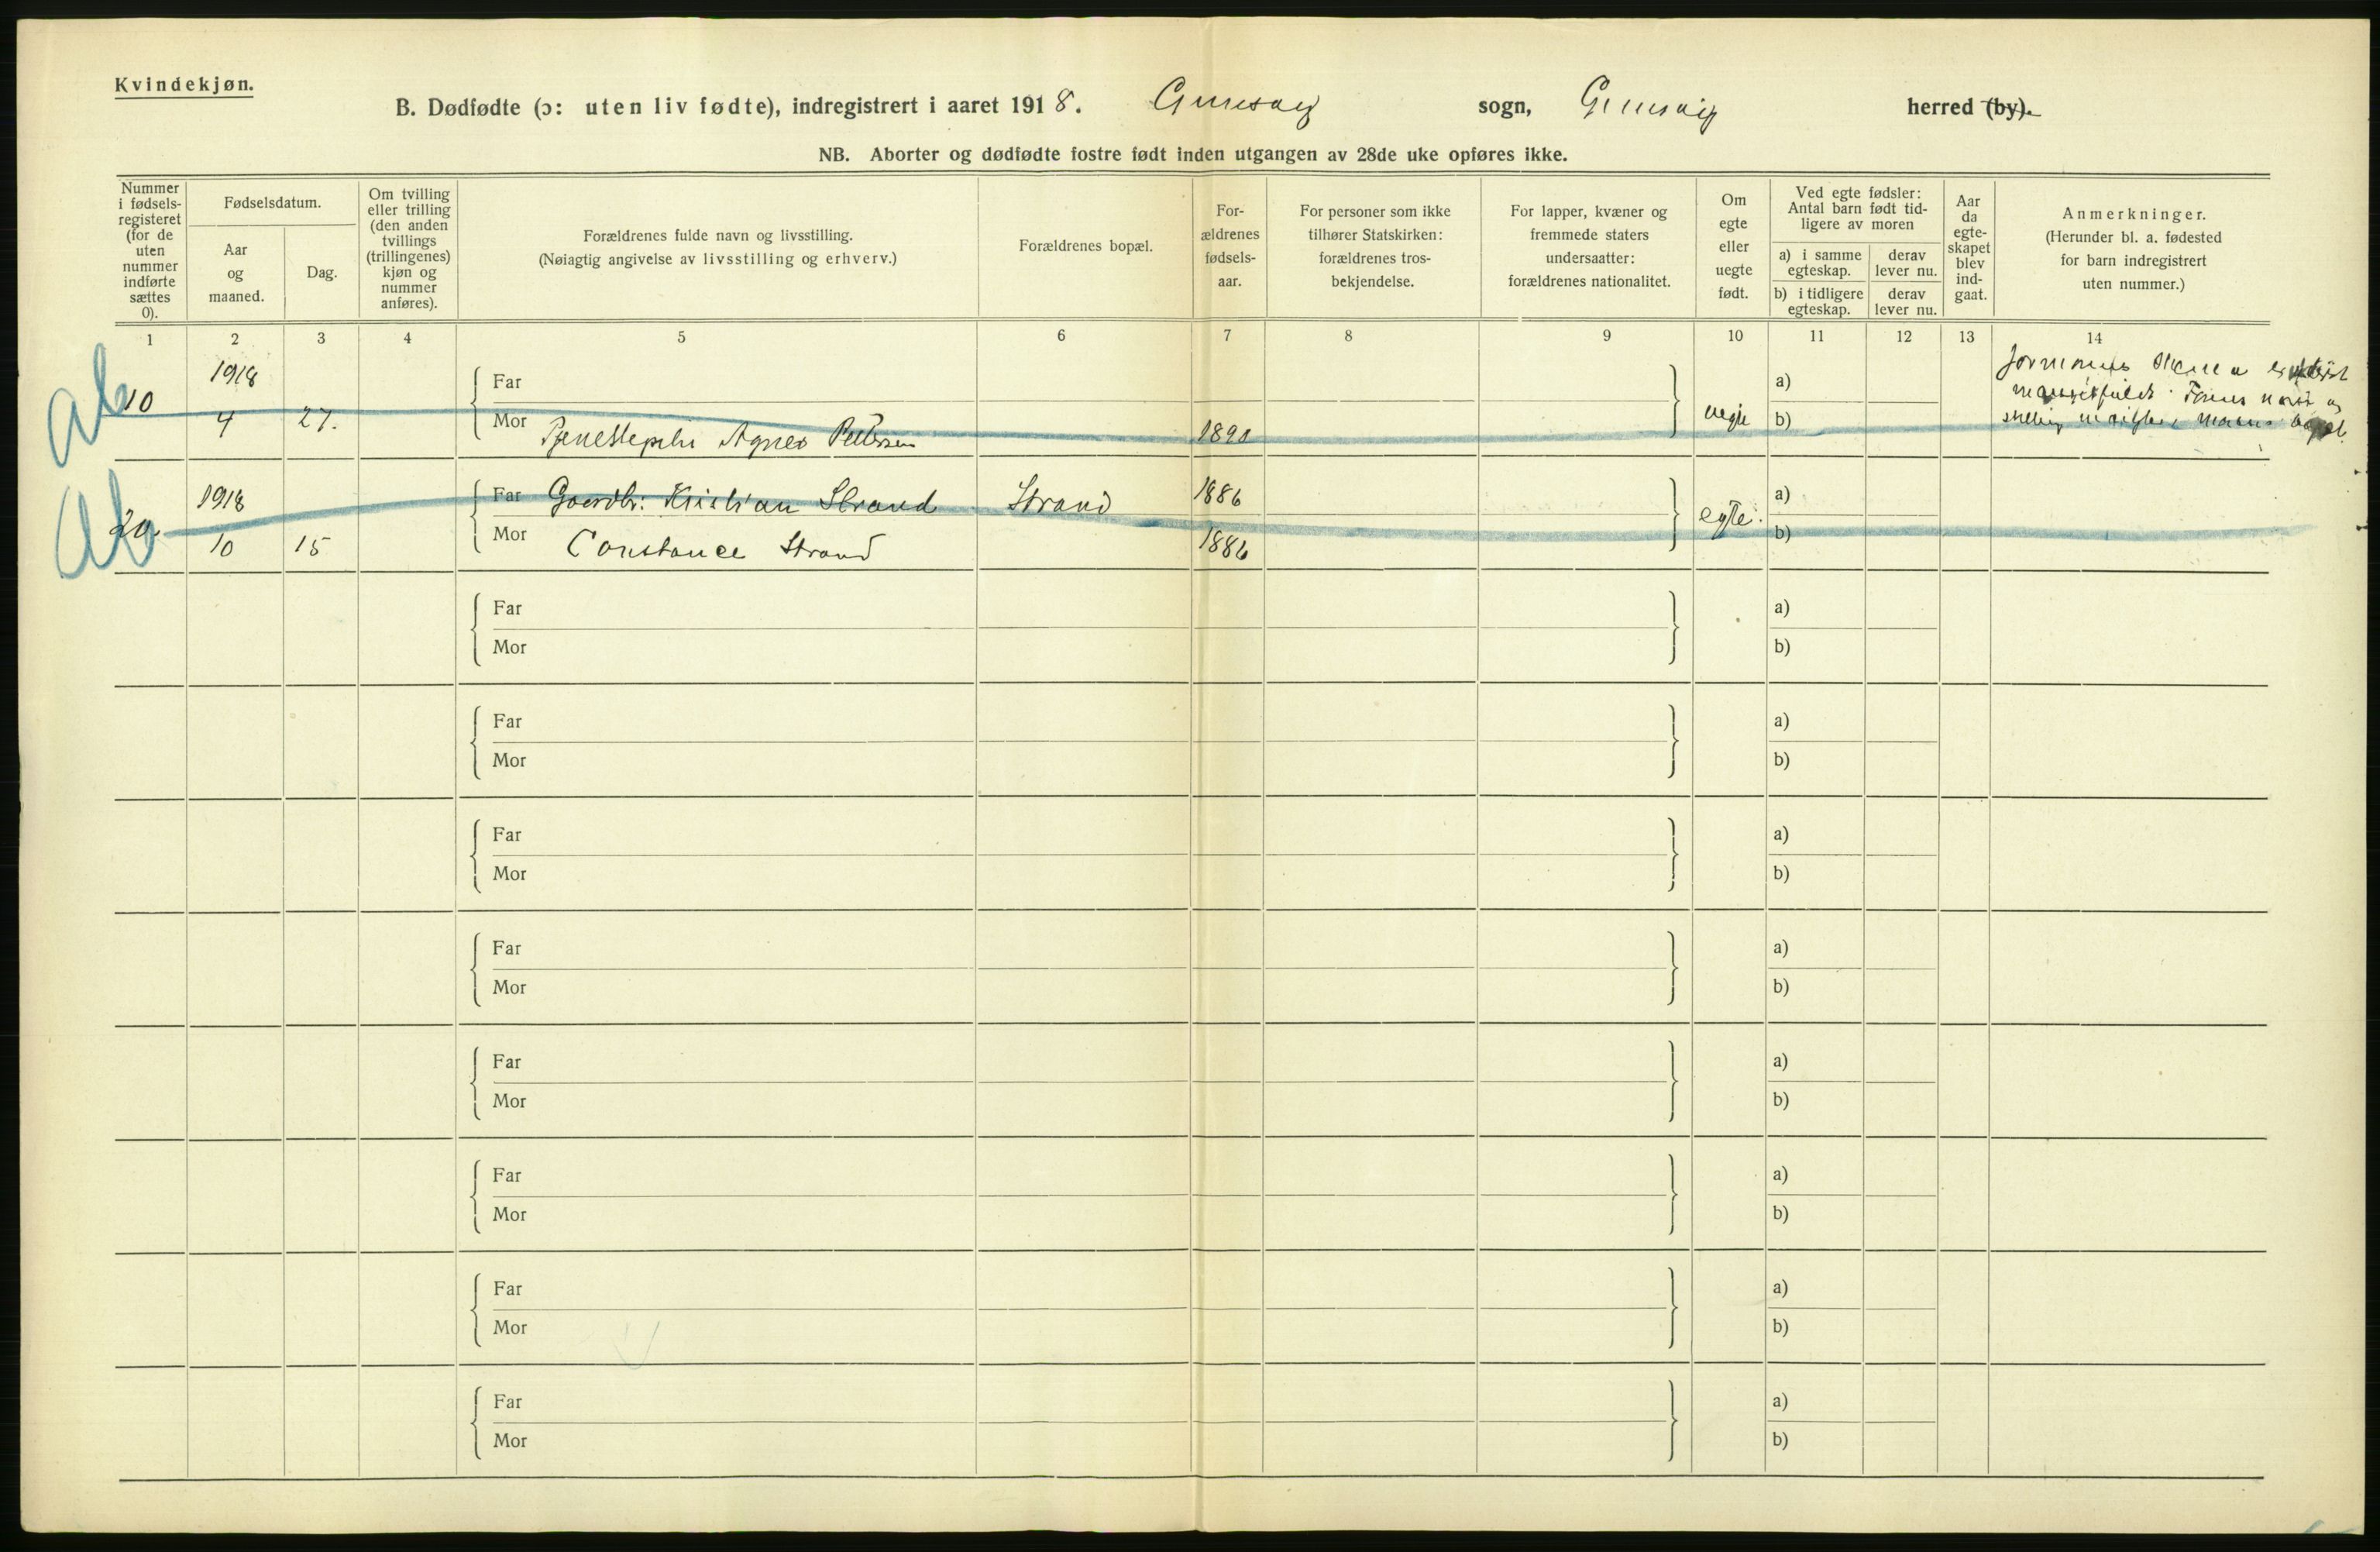 Kvindekjøn.
B. Dødfødte (ɔ: uten liv fødte), indregistrert i aaret 1918. Gimsøy sogn, Gimsøy herred (by).
NB. Aborter og dødfødte fostre født inden utgangen av 28de uke opføres ikke.
Nummer i fødsels-registeret (for de uten nummer indførte sættes 0).
Fødselsdatum.
Aar og maaned.
Dag.
Om tvilling eller trilling (den anden tvillings (trillingenes) kjøn og nummer anføres).
Forældrenes fulde navn og livsstilling.
(Nøiagtig angivelse av livsstilling og erhverv.)
Forældrenes bopæl.
For-ældrenes fødsels-aar.
For personer som ikke tilhører Statskirken: forældrenes tros-bekjendelse.
For lapper, kvæner og fremmede staters undersaatter: forældrenes nationalitet.
Om egte eller uegte født.
Ved egte fødsler: Antal barn født tid-ligere av moren
a) i samme egteskap.
derav lever nu.
b) i tidligere egteskap.
derav lever nu.
Aar da egte-skapet blev ind-gaat.
Anmerkninger.
(Herunder bl. a. fødested for barn indregistrert uten nummer.)
1 2 3 4 5 6 7 8 9 10 11 12 13 14
10 1918 4 27.
Far
Mor Agnes Pettersen 1890
uegte
a)
b)
20 1918 10 15
Far Gaardbr: Kristian Strand Strand 1886
Mor Constance Strand 1886
egte.
a)
b)
Far a)
Mor b)
Far a)
Mor b)
Far a)
Mor b)
Far a)
Mor b)
Far a)
Mor b)
Far a)
Mor b)
Far a)
Mor b)
Far a)
Mor b)